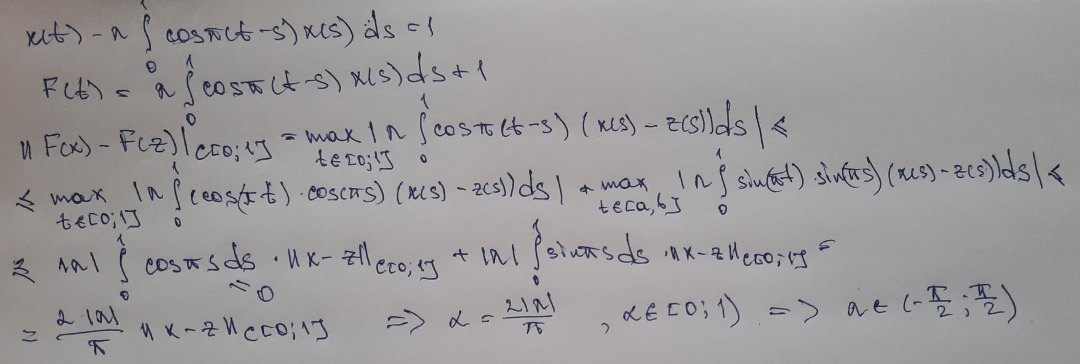 x(t) - λ ∫₀¹ cosπ(t-s) x(s) ds = 1
F(t) = λ ∫₀¹ cosπ(t-s) x(s) ds + 1
||F(x) - F(z)||_{C[0;1]} = max_{t∈[0;1]} |λ ∫₀¹ cosπ(t-s) (x(s) - z(s)) ds| ≤
≤ max_{t∈[0;1]} |λ ∫₀¹ (cos(πt) · cos(πs) (x(s) - z(s)) ds| + max_{t∈[a,b]} |λ ∫₀¹ sin(πt) · sin(πs) (x(s) - z(s)) ds| ≤
≤ |λ| ∫₀¹ cosπs ds · ||x - z||_{C[0;1]} + |λ| ∫₀¹ sinπs ds · ||x - z||_{C[0;1]} =
= 0
= 2|λ|/π ||x - z||_{C[0;1]} => α = 2|λ|/π , α∈[0;1) => λ ∈ (-π/2; π/2)